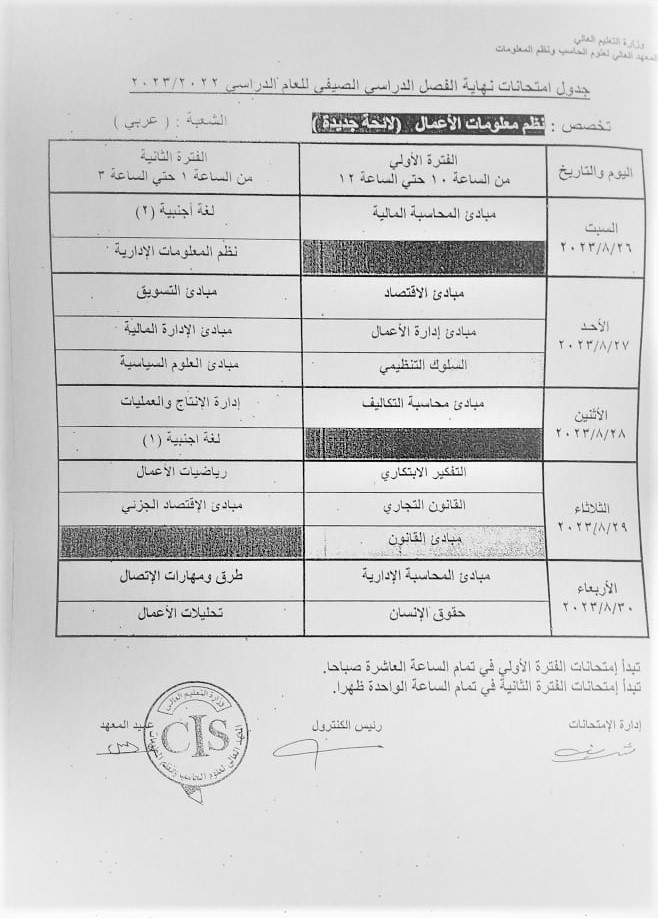 وزارة التعليم العالي
المعهد العالي لعلوم الحاسب ونظم المعلومات
جدول امتحانات نهاية الفصل الدراسي الصيفي للعام الدراسي ٢٠٢٣/٢٠٢٢
تخصص : نظم معلومات الأعمال (لائحة جديدة) الشعبة : ( عربي )
اليوم والتاريخ
الفترة الأولي
من الساعة ١٠ حتي الساعة ١٢
الفترة الثانية
من الساعة ١ حتي الساعة ٣
السبت
٢٠٢٣/٨/٢٦
مبادئ المحاسبة المالية
لغة أجنبية (٢)
نظم المعلومات الإدارية
الأحد
٢٠٢٣/٨/٢٧
مبادئ الاقتصاد
مبادئ التسويق
مبادئ إدارة الأعمال
مبادئ الإدارة المالية
السلوك التنظيمي
مبادئ العلوم السياسية
الأثنين
٢٠٢٣/٨/٢٨
مبادئ محاسبة التكاليف
إدارة الإنتاج والعمليات
لغة اجنبية (١)
الثلاثاء
٢٠٢٣/٨/٢٩
التفكير الابتكاري
رياضيات الأعمال
القانون التجاري
مبادئ الإقتصاد الجزئي
مبادئ القانون
الأربعاء
٢٠٢٣/٨/٣٠
مبادئ المحاسبة الإدارية
طرق ومهارات الإتصال
حقوق الإنسان
تحليلات الأعمال
تبدأ إمتحانات الفترة الأولي في تمام الساعة العاشرة صباحا.
تبدأ إمتحانات الفترة الثانية في تمام الساعة الواحدة ظهرا.
إدارة الإمتحانات
رئيس الكنترول
عميد المعهد
وزارة التعليم العالي
CIS
المعهد العالي لعلوم الحاسب ونظم المعلومات